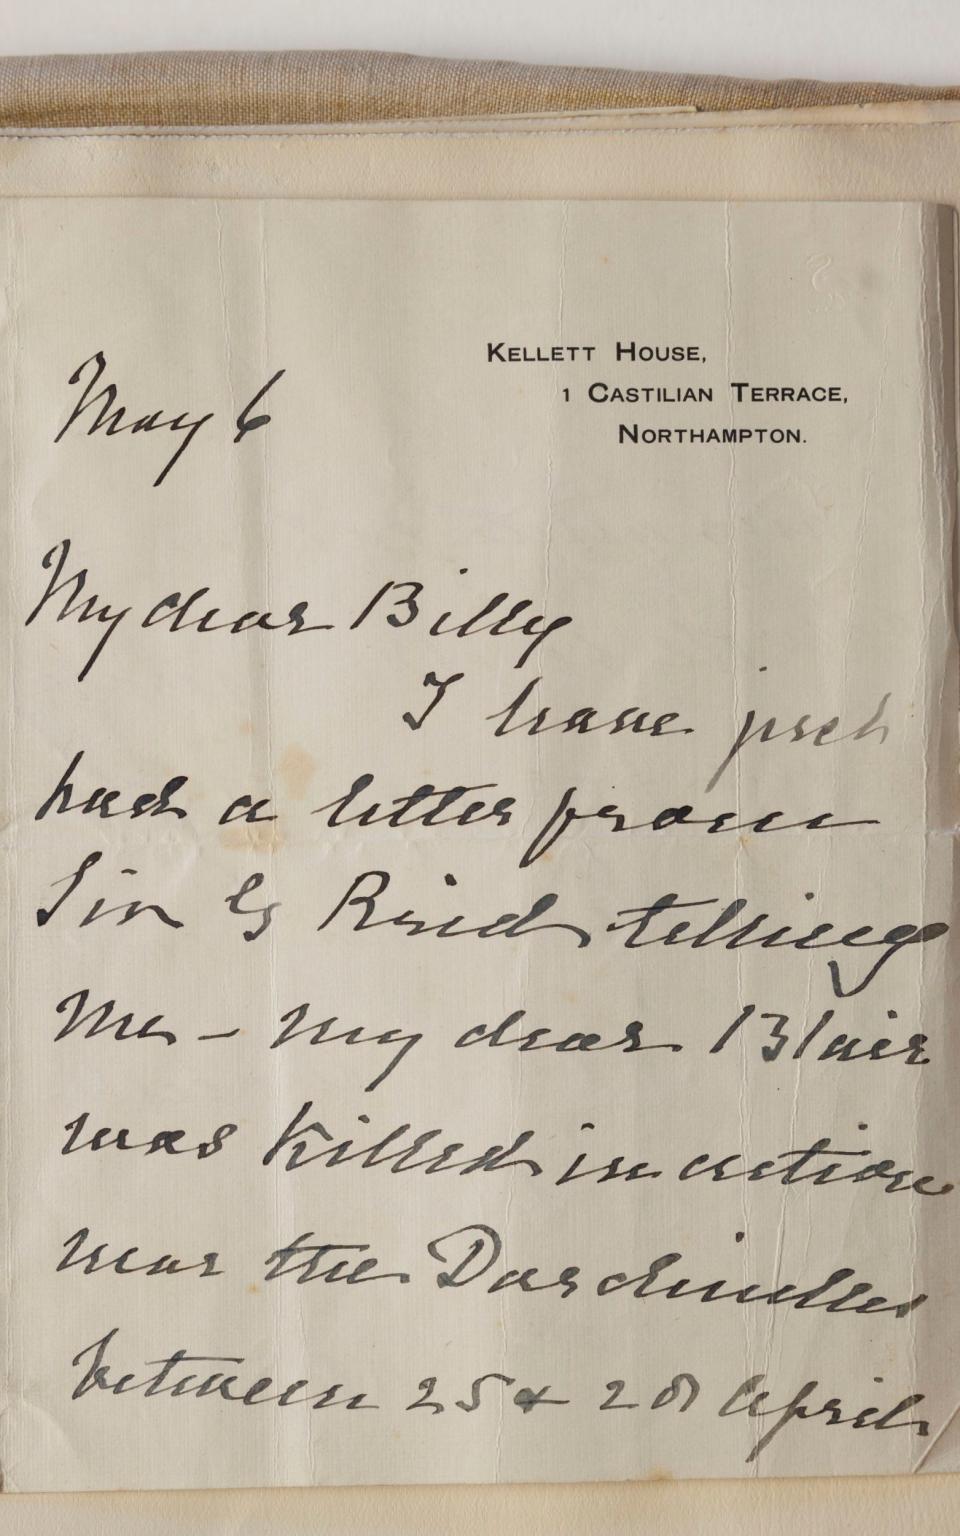 KELLETT HOUSE,
1 CASTILIAN TERRACE,
NORTHAMPTON.
May 6
My dear Billy
I have just
had a letter from
Sir G Reid telling
me - my dear Blair
was killed in action
near the Dardinelles
between 25 & 28 April